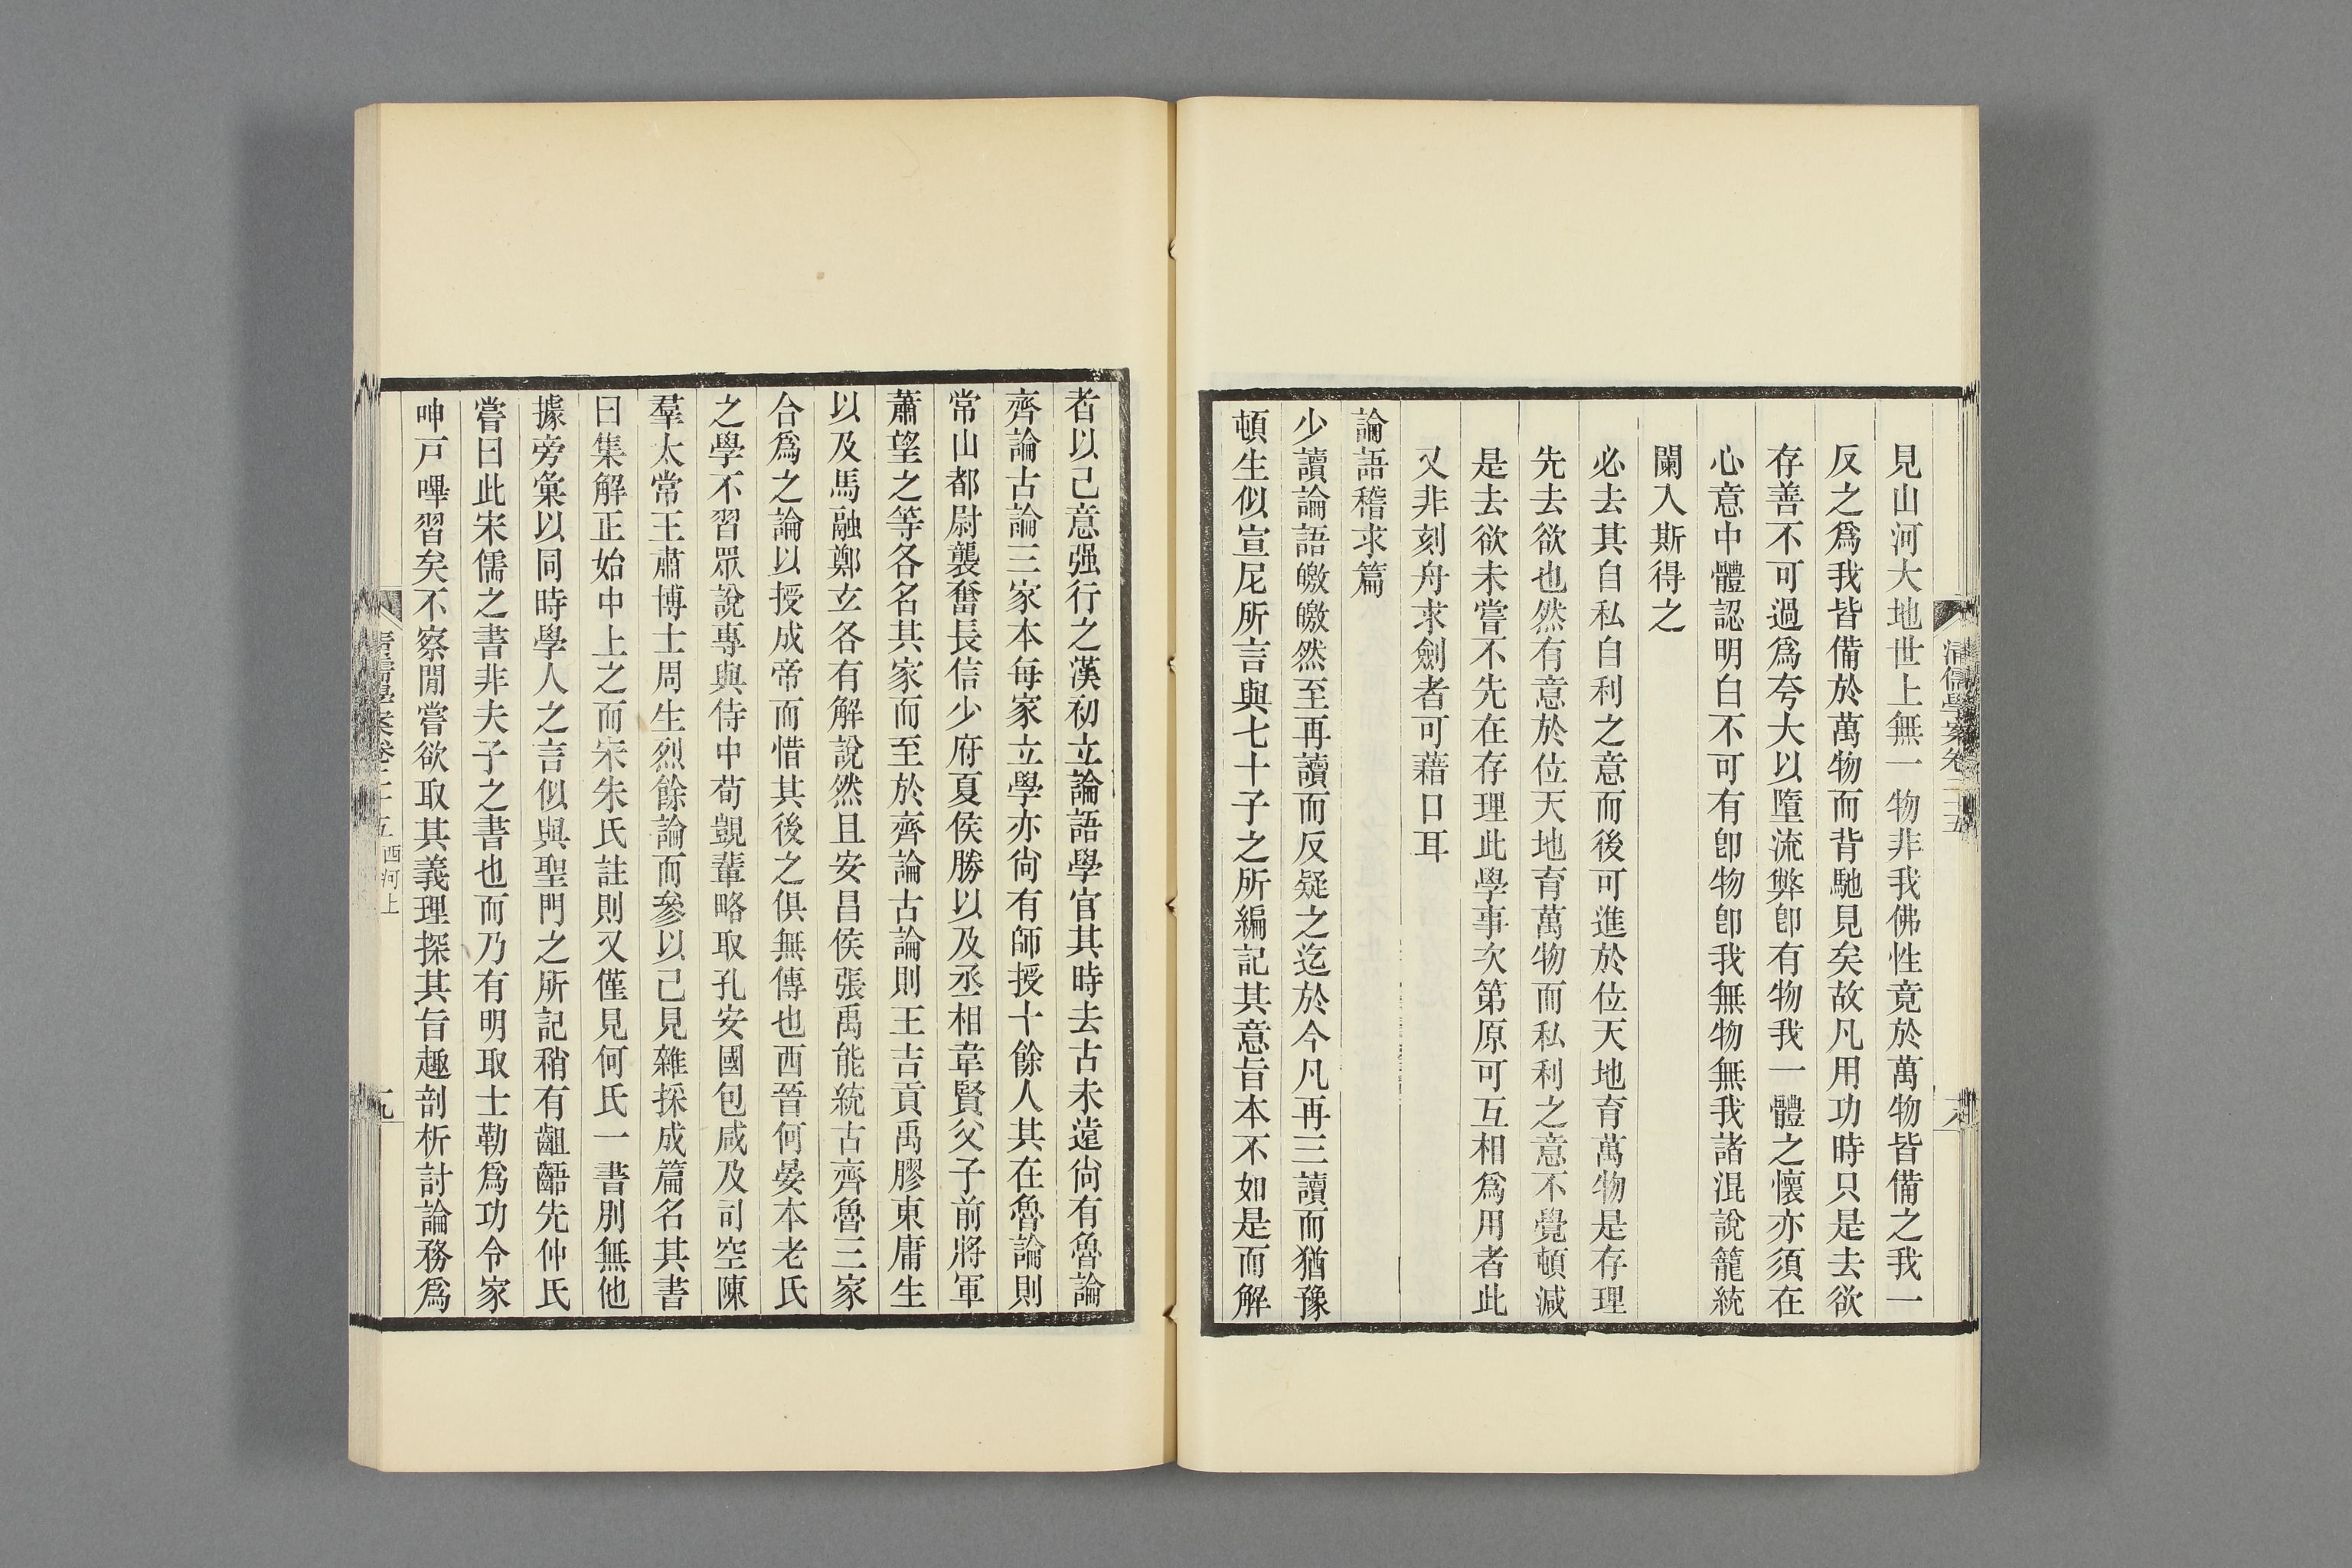 見山河大地世上無一物非我佛性竟於萬物皆備之我一
反之爲我皆備於萬物而背馳見矣故凡用功時只是去欲
存善不可過爲夸大以墮流弊卽有物我一體之懷亦須在
心意中體認明白不可有卽物卽我無物無我諸混說籠統
闌入斯得之
必去其自私自利之意而後可進於位天地育萬物是存理
先去欲也然有意於位天地育萬物而私利之意不覺頓減
是去欲未嘗不先在存理此學事次第原可互相爲用者此
又非刻舟求劍者可藉口耳
論語稽求篇
少讀論語皦皦然至再讀而反疑之迄於今凡再三讀而猶豫
頓生似宣尼所言與七十子之所編記其意旨本不如是而解
清儒學案卷二十五
八
者以己意强行之漢初立論語學官其時去古未遠尙有魯論
齊論古論三家本每家立學亦尙有師授十餘人其在魯論則
常山都尉襲奮長信少府夏侯勝以及丞相韋賢父子前將軍
蕭望之等各名其家而至於齊論古論則王吉貢禹膠東庸生
以及馬融鄭玄各有解說然且安昌侯張禹能統古齊魯三家
合爲之論以授成帝而惜其後之俱無傳也西晉何晏本老氏
之學不習眾說專與侍中荀顗輩略取孔安國包咸及司空陳
羣太常王肅博士周生烈餘論而參以己見雜採成篇名其書
曰集解正始中上之而宋朱氏註則又僅見何氏一書別無他
據旁彙以同時學人之言似與聖門之所記稍有齟齬先仲氏
嘗曰此宋儒之書非夫子之書也而乃有明取士勒爲功令家
呻戸嗶習矣不察閒嘗欲取其義理探其旨趣剖析討論務爲
清儒學案卷二十五 西河上
九